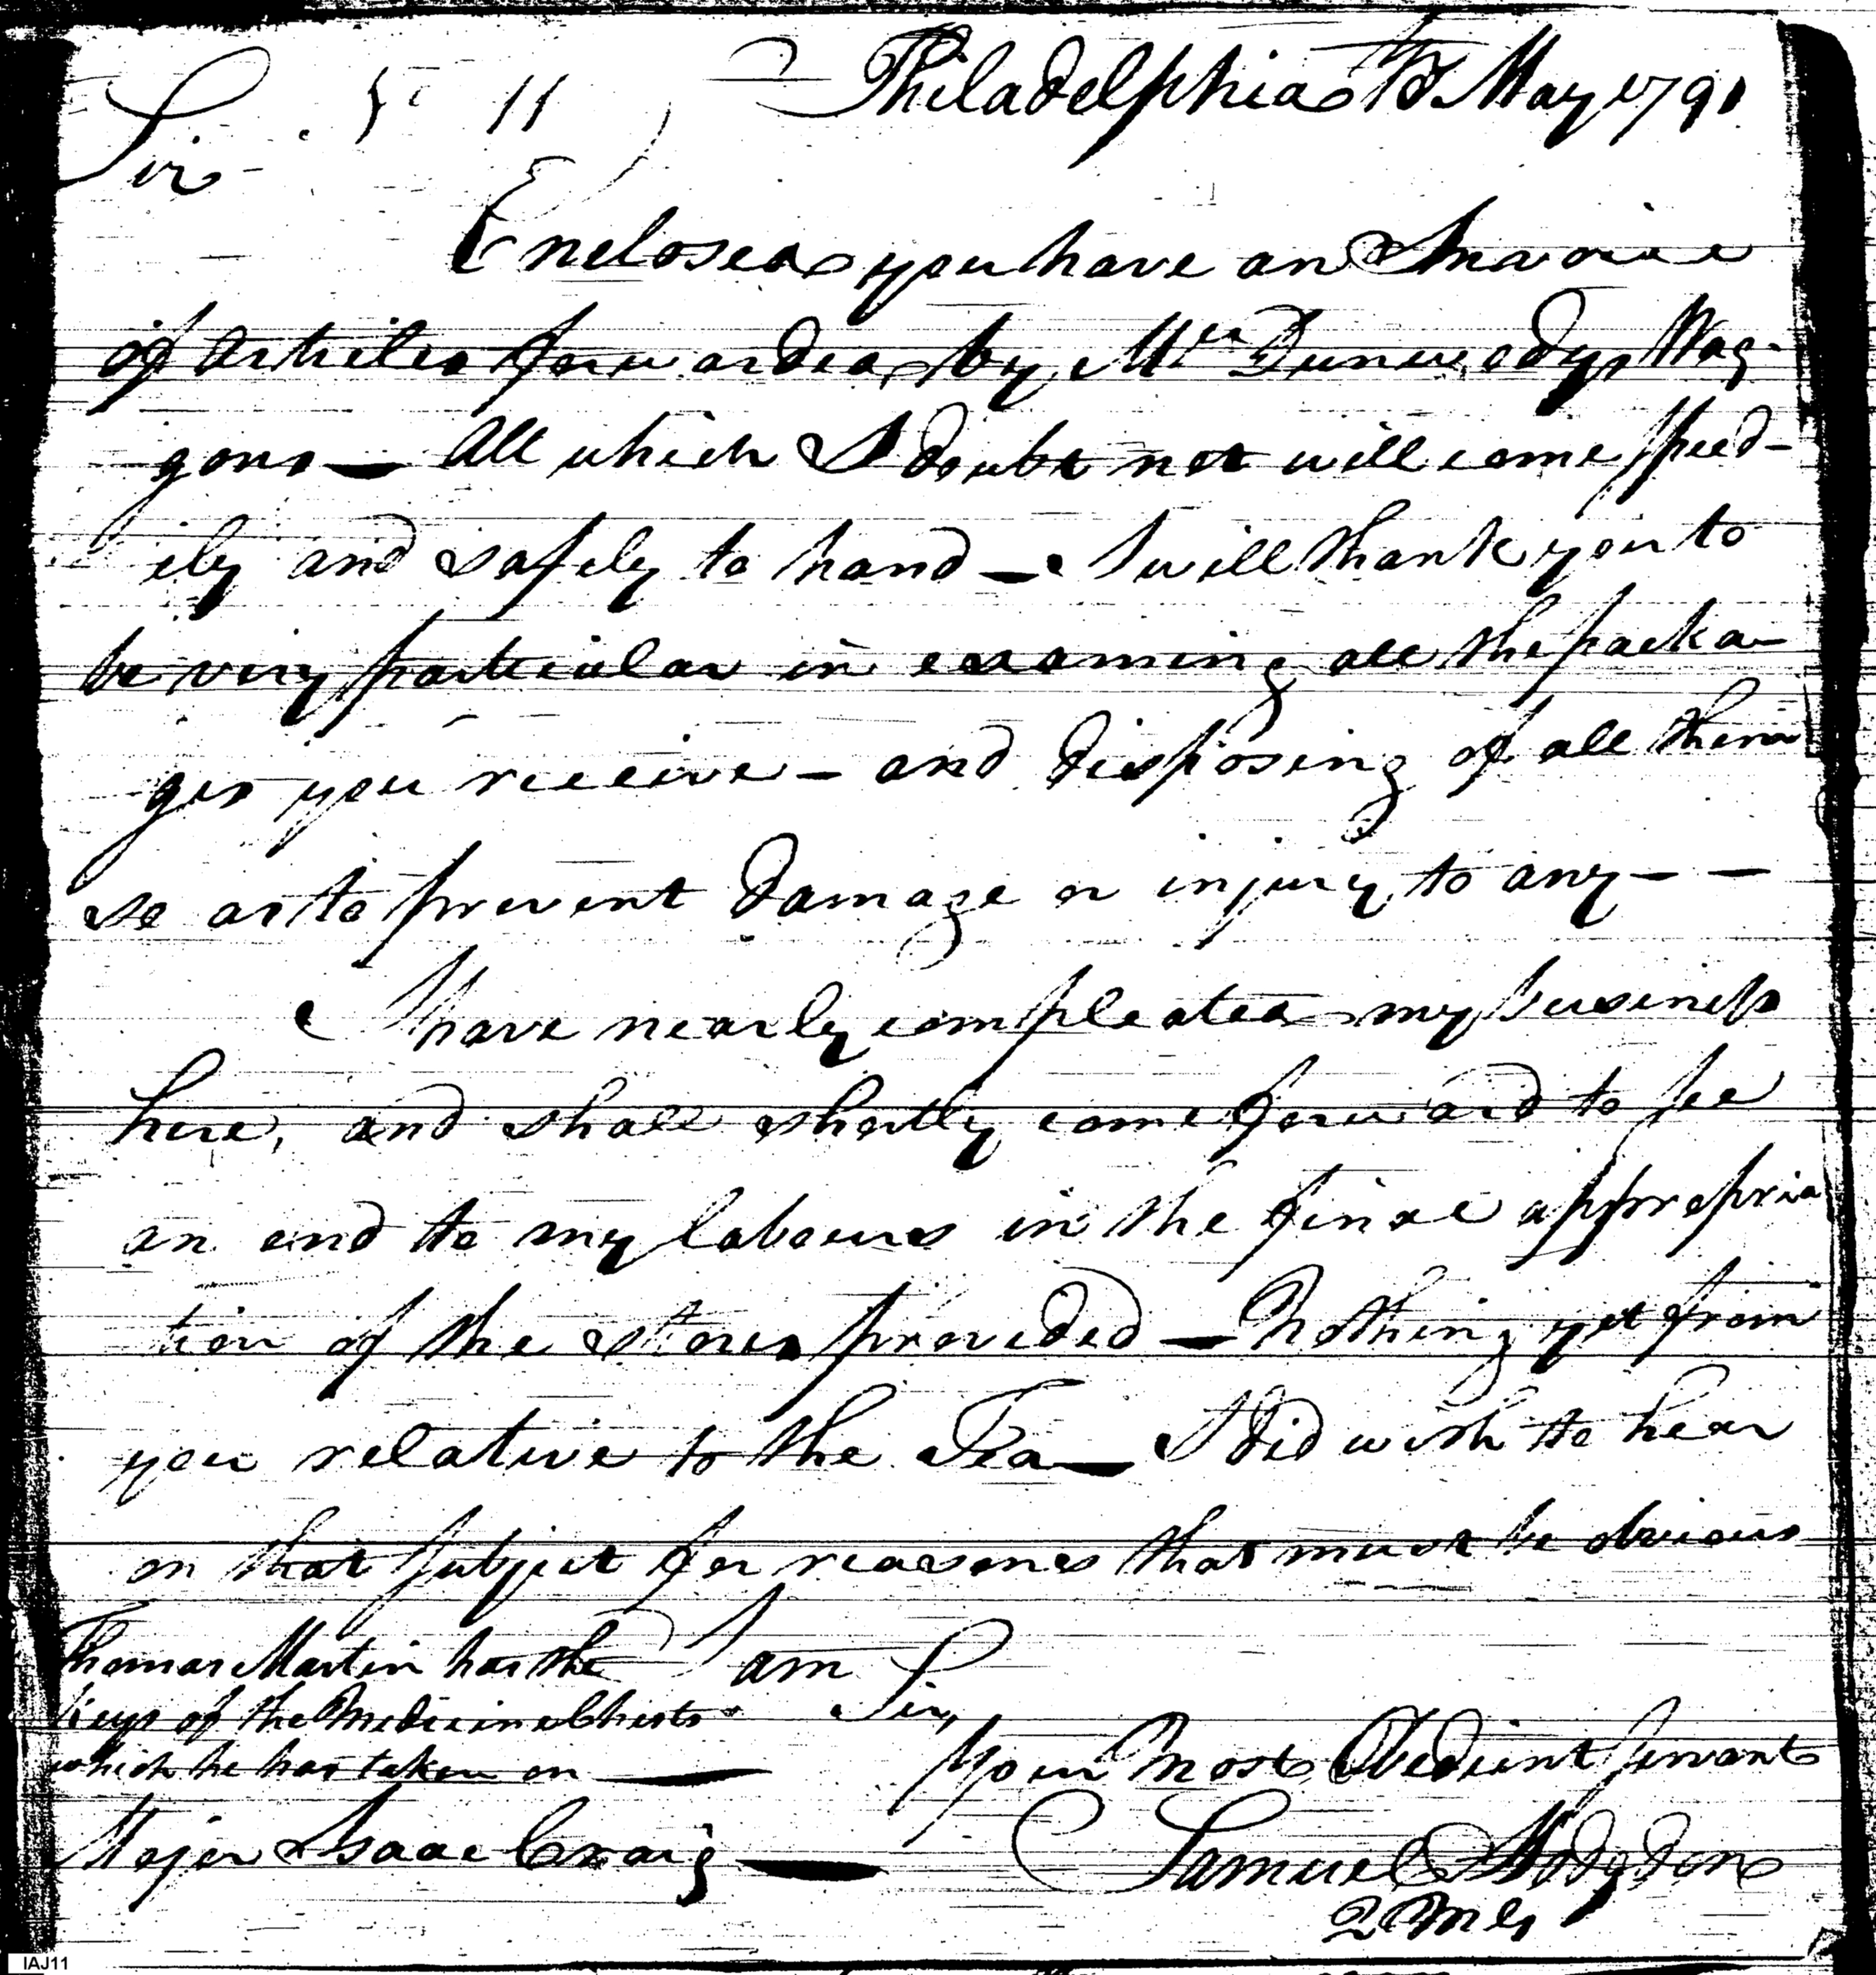 Philadelphia May 1791
Sir
Enclosed you have an Invoice
of Articles forwarded by Mr Dunwodys Wag-
gons — All which I doubt not will come speed-
ily and safely to hand — I will thank you to
be very particular in examining all the packa-
ges you receive — and disposing of all them
so as to prevent damage or injury to any — —
I have nearly compleated my business
here, and shall shortly come forward to see
an end to my labours in the final appropria
tion of the stores provided — Nothing yet from
you relative to the Tea — I did wish to hear
on that subject for reasons that must be obvious
I am
Sir,
Your Most Obedient servant
Samuel Hodgdon
QMG
Thomas Martin has the
keys of the Medicine Chests
which he has taken on —
Major Isaac Craig —
IAJ11